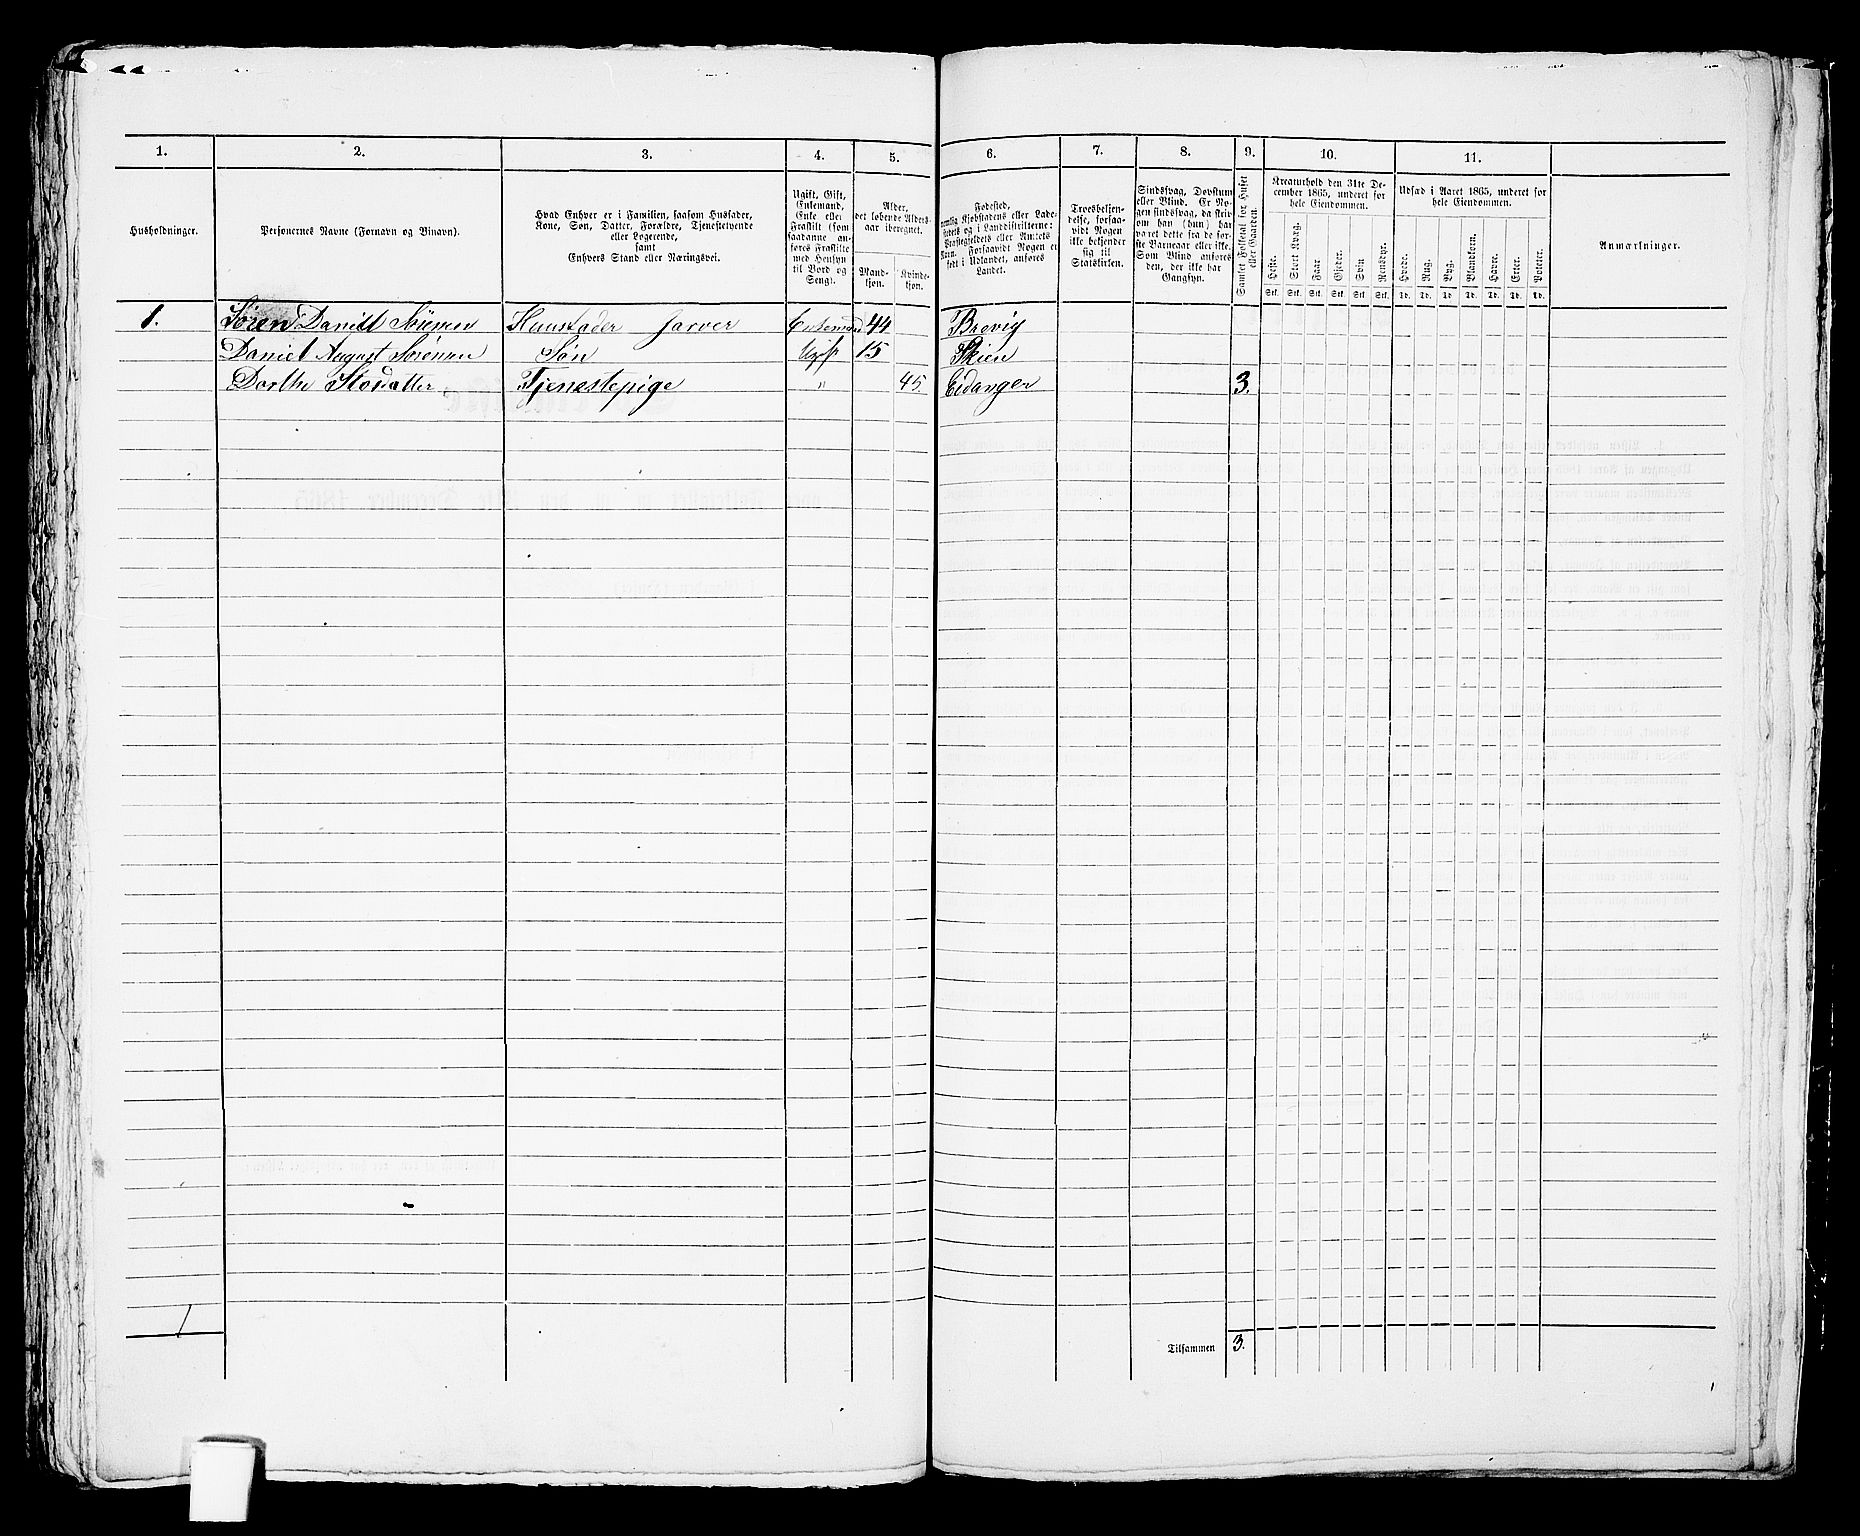 1. 2. 3. 4. 5. 6. 7. 8. 9. 10. 11.
Husholdninger.
Personernes Navne (Fornavn og Binavn).
Hvad Enhver er i Familien, saasom Husfader,
Kone, Søn, Datter, Forældre, Tjenestetyende
eller Logerende,
samt
Enhvers Stand eller Næringsvei.
Ugift, Gift,
Enkemand,
Enke eller
Fraskilt (som
saadanne an-
føres Fraskilte
med Hensyn
til Bord og
Seng).
Alder,
det løbende Alders-
aar iberegnet.
Mand-
kjøn.
Kvinde-
kjøn.
Fødested,
nemlig Kjøbstadens eller Lade-
stedets og i Landdistrikterne:
Præstegjeldets eller Amtets
Navn. Forsaavidt Nogen er
født i Udlandet, anføres
Landet.
Troesbekjen-
delse, forsaa-
vidt Nogen
ikke bekjender
sig til
Statskirken.
Sindssvag, Døvstum
eller Blind. Er No-
gen sindssvag, da skriv
om han (hun) har
været dette fra de før-
ste Barneaar eller ikke.
Som Blind anføres
den, der ikke har
Gangsyn.
Samlet Folketal for Huset
eller Gaarden.
Kreaturhold den 31te De-
cember 1865, underet for
hele Eiendommen.
Heste. Stort Kvæg. Faar Gjeder. Svin Rensdyr.
Stk. Stk. Stk. Stk. Stk. Stk.
Udsæd i Aaret 1865, underet for
hele Eiendommen.
Hvede. Rug. Byg. Blandkorn. Havre. Erter. Poteter.
Td. Td. Td. Td. Td. Td. Td.
Anmærkninger.
1. Søren Daniel Sørensen Huusfader Farver Enkemand 44 Brevig
Daniel August Sørensen Søn Ugift 15 Skien
Dorthe Tjenestepige " 45. Eidanger 3.
1
Tilsammen 3.